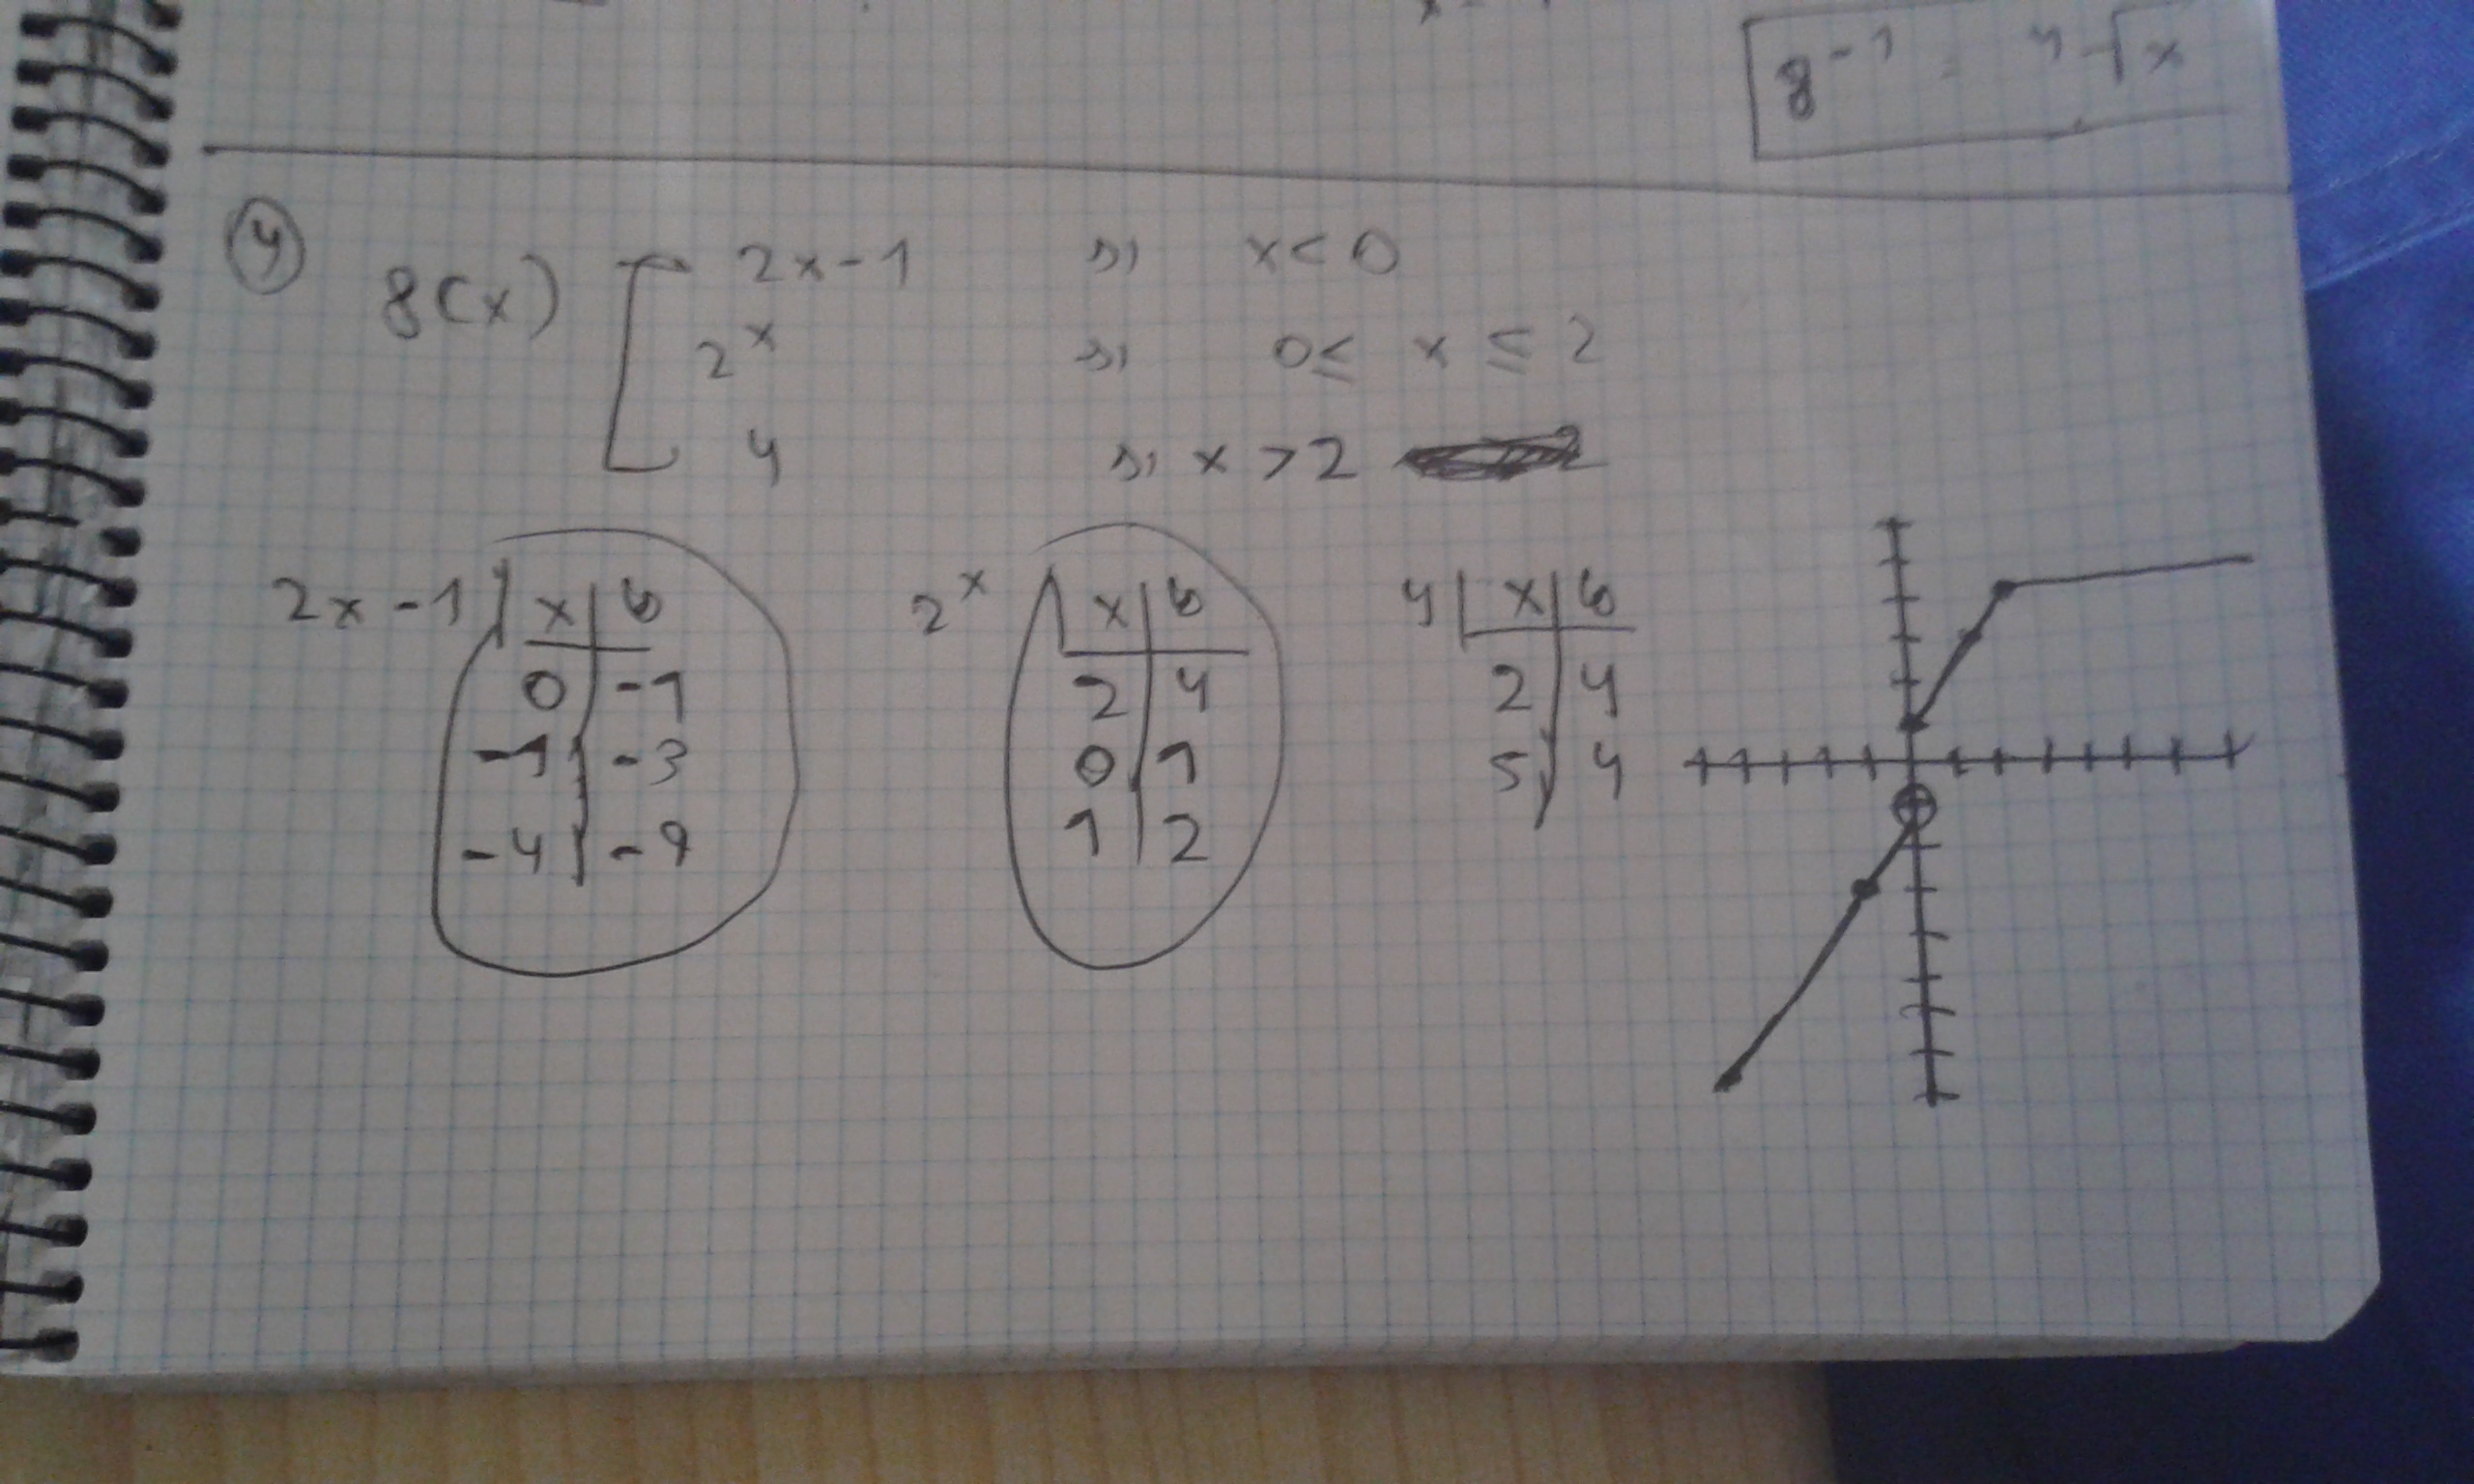 8⁻¹ = ⁴√x
④
8(x) [ 2x-1 si x<0
2ˣ si 0≤ x ≤ 2
4 si x >2
2x-1 | x | y
0 | -1
-1 | -3
-4 | -9
2ˣ | x | y
2 | 4
0 | 1
1 | 2
4 | x | y
2 | 4
5 | 4